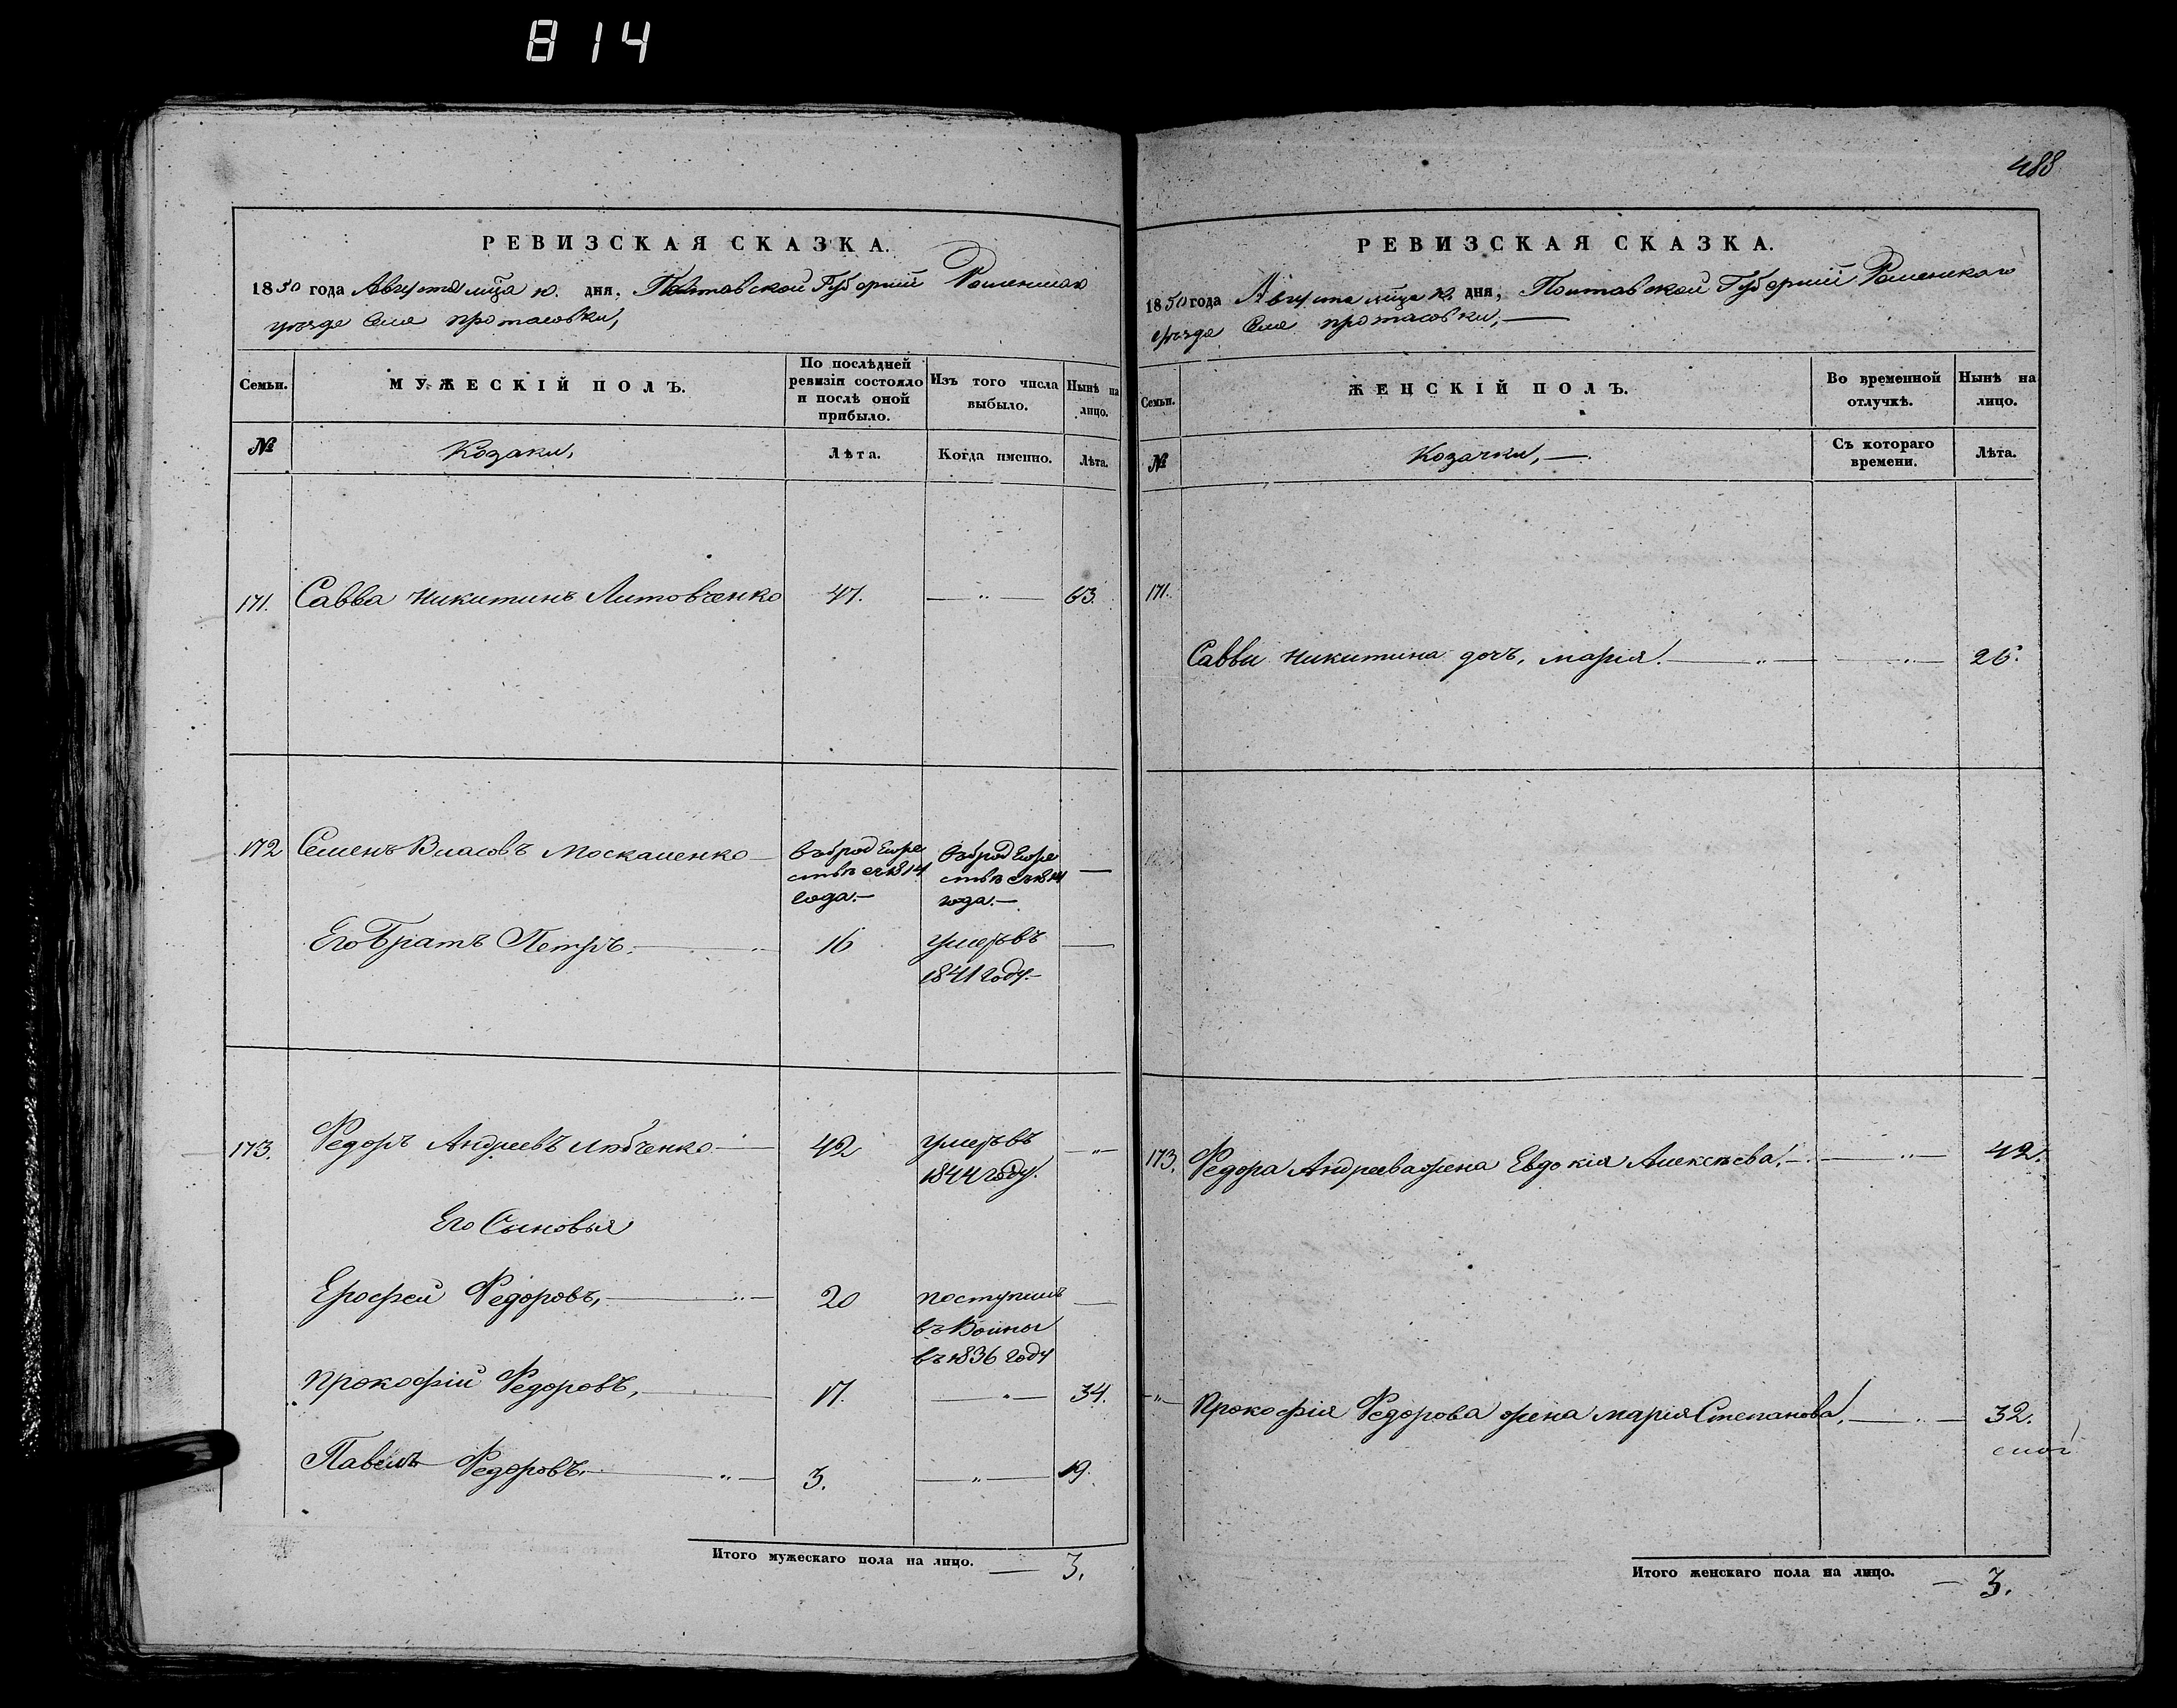 814
РЕВИЗСКАЯ СКАЗКА.
1850 года Августа мца 10. дня, Полтавской Губернии Роменскаго
уезда Села протасовки,
Семьи.
МУЖЕСКІЙ ПОЛЪ.
По послѣдней
ревизіи состояло
и послѣ оной
прибыло.
Изъ того числа
выбыло.
Нынѣ на
лицо.
№
Козаки,
Лѣта.
Когда именно.
Лѣта.
171. Савва никитинъ Литовченко 47. — „ — 63.
172 Семенъ Власовъ Москаленко —
въброд
ствѣ съ 1814
года.—
въброд
ствѣ съ 1814
года.—
Его Братъ Петръ. 16 умеръ въ
1841 году.
173. Федоръ Андреевъ Любченко 42 умеръ въ
1844 году.
Его Сыновья
Ерофей Федоровъ, 20 поступилъ
въ Воины
въ 1836 году
прокофій Федоровъ, 17. 34.
Павелъ Федоровъ. 3. 19.
Итого мужескаго пола на лицо. — 3.
488
РЕВИЗСКАЯ СКАЗКА.
1850 года Августа мца 10. дня, Полтавской Губерніи Роменскаго
уезда Села протасовки,—
Семьи.
ЖЕНСКІЙ ПОЛЪ.
Во временной
отлучкѣ.
Нынѣ на
лицо.
№
Козачки,—.
Съ котораго
времени.
Лѣта.
171.
Саввы никитина дочь, марія. 26.
173. Федора Андреева жена Евдокія Алексѣева. 42.
прокофія Федорова жена марія Степанова. 32.
Итого женскаго пола на лицо. — 3.